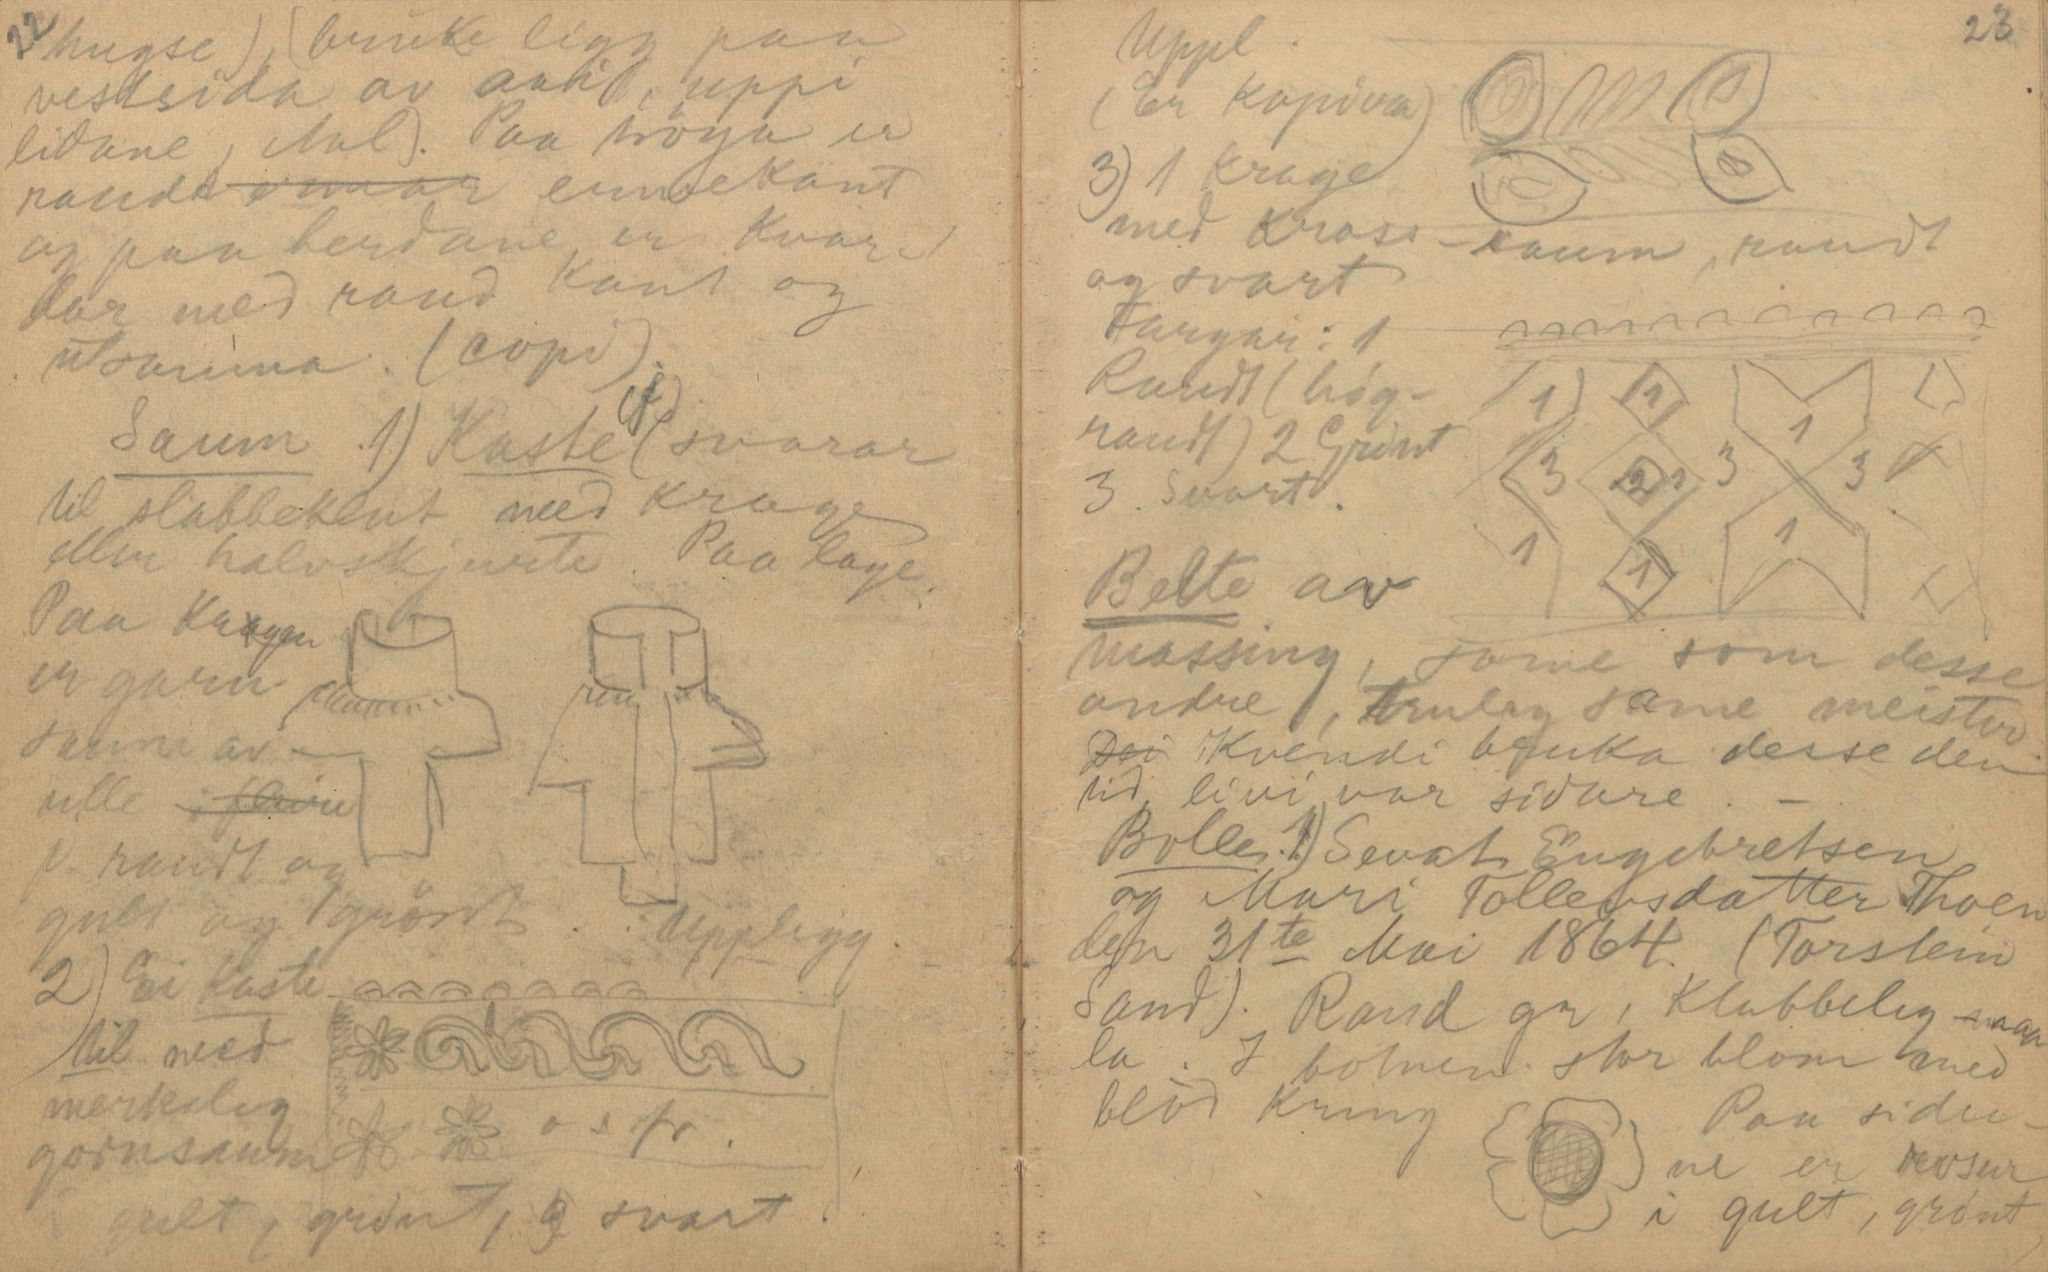 22
hugse), (bruke ligg paa
vestsida av aani, uppi
lidane, Aal). Paa tröya er
raudt ermekant
og paa herdane er kvar
lar med raud kant og
utsauma. (copi).
Saum 1) Kaste (f) (svarar
til slabbeklut med krage
eller halvskjurte. Paa lage.
Paa Kragen
er garn
saum av
ulle
i raudt og
gult og grönt. Upplegg.
2) Ei kaste
til med
merkeleg
garnsaum
o.s.fr.
gult, grönt, og svart.
23
Uppl.
(Er kopiera)
3) 1 Krage
med kross-saum, raudt
og svart
Fargar: 1
Raudt (hög-
raudt) 2 Grönt
3 Svart.
1 1 1
3 2 1 3 3
1 1 1
Belte av
messing, same som desse
andre, truleg same meister.
Kvendi bruka desse den
tid livi var sidare. -
Bolle. 1) Sevat Engebretsen
og Mari Tollefsdatter Thoen
den 31te Mai 1864. (Torstein
Sand). Raud gr, klubbeleg maa
la. I botnen stor blom med
blöd kring Paa sidu-
ne er rosur
i gult, grönt,